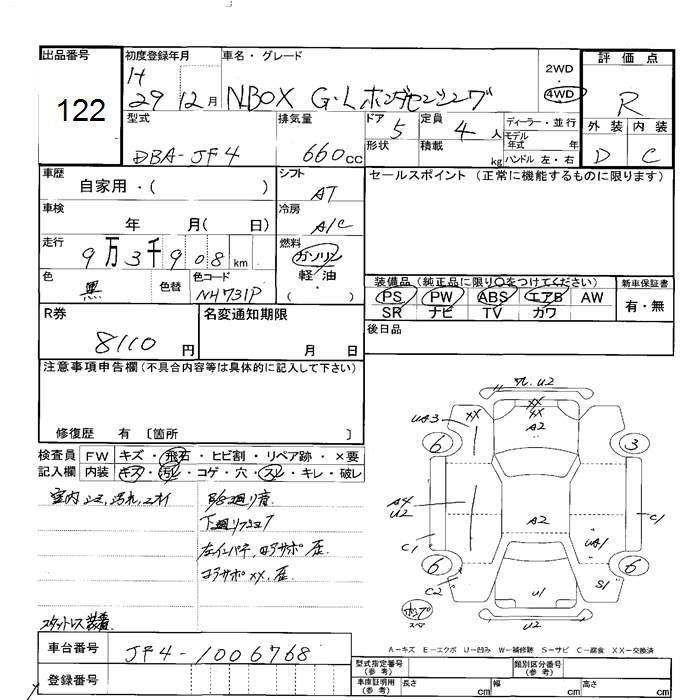 出品番号 122
初度登録年月 H 29 12月
車名・グレード NBOX G・Lホンダセンシング
2WD 4WD
評価点 R
外装 内装
D C
型式 DBA-JF4
排気量 660cc
ドア 5
形状
定員 4人
積載 kg
ディーラー・並行
モデル年式 年
ハンドル 左・右
車歴 自家用・( )
シフト AT
車検 年 月( 日)
冷房 A/C
走行 9万3千908km
燃料 ガソリン 軽油 ( )
色 黒 色替
色コード NH731P
セールスポイント (正常に機能するものに限ります)
装備品 (純正品に限り○をつけてください)
PS PW ABS エアB AW
SR ナビ TV カワ
新車保証書 有・無
後日品
R券 8110円
名変通知期限 月 日
注意事項申告欄 (不具合内容等は具体的に記入して下さい)
修復歴 有 〔箇所 〕
検査員記入欄
FW キズ・飛石・ヒビ割・リペア跡・×要
内装 キズ・汚レ・コゲ・穴・スレ・キレ・破レ
室内シミ、汚れ、ニオイ
下廻りサビ
左インパネ、コアサポ歪
コアサポXX、歪
スタットレス装着
車台番号 JF4-1006768
登録番号
U2
XX
XX
A2
UA3 XX
6 3
A4
U2
A2
C1
C1
UA1
6 6
C2
S1
U1
U2
A-キズ E-エクボ U-凹み W-補修跡 S-サビ C-腐食 XX-交換済
型式指定番号 (参考)
類別区分番号 (参考)
車庫証明用 (参考) 長さ cm 幅 cm 高さ cm